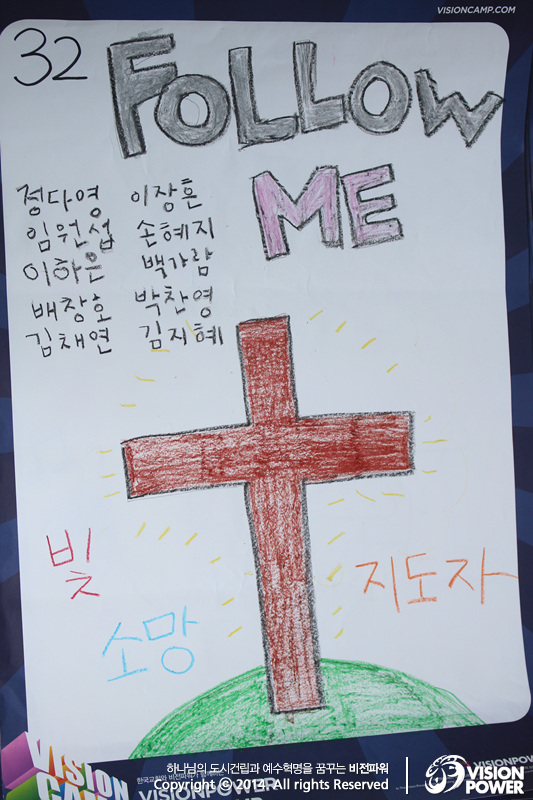 VISIONCAMP.COM
32
FOLLOW
ME
정다영 이장흔
임원섭 손혜지
이하은 백가람
배창호 박찬영
김채연 김지혜
빛
소망
지도자
VISION
CAMP
한국교회와 비전파워가 함께하는
VISIONPOWER
VISIONPOW
하나님의 도시건립과 예수혁명을 꿈꾸는 비전파워
Copyright © 2014. All rights Reserved
VISION
POWER